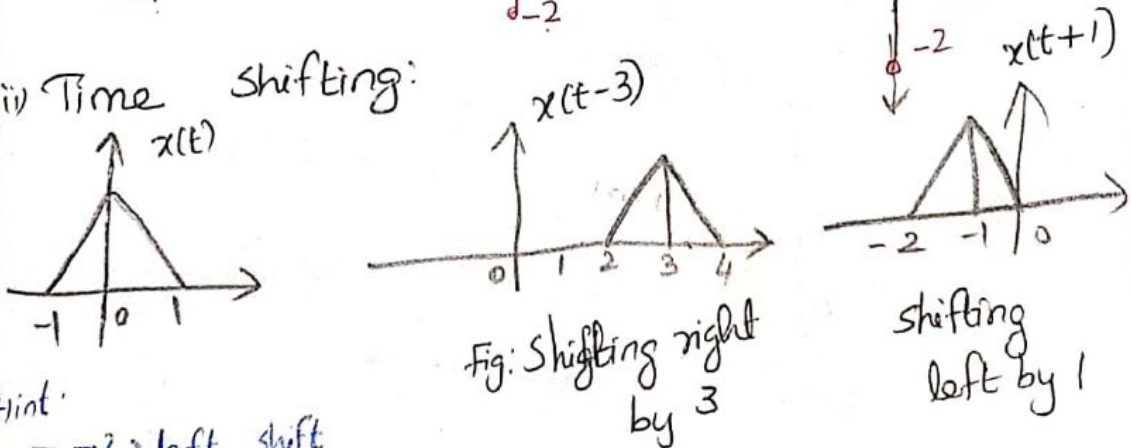 -2
-2
ii) Time Shifting:
x(t)
-1 0 1
x(t-3)
0 1 2 3 4
Fig: Shifting right
by 3
x(t+1)
-2 -1 0
shifting
left by 1
Hint.
left shift